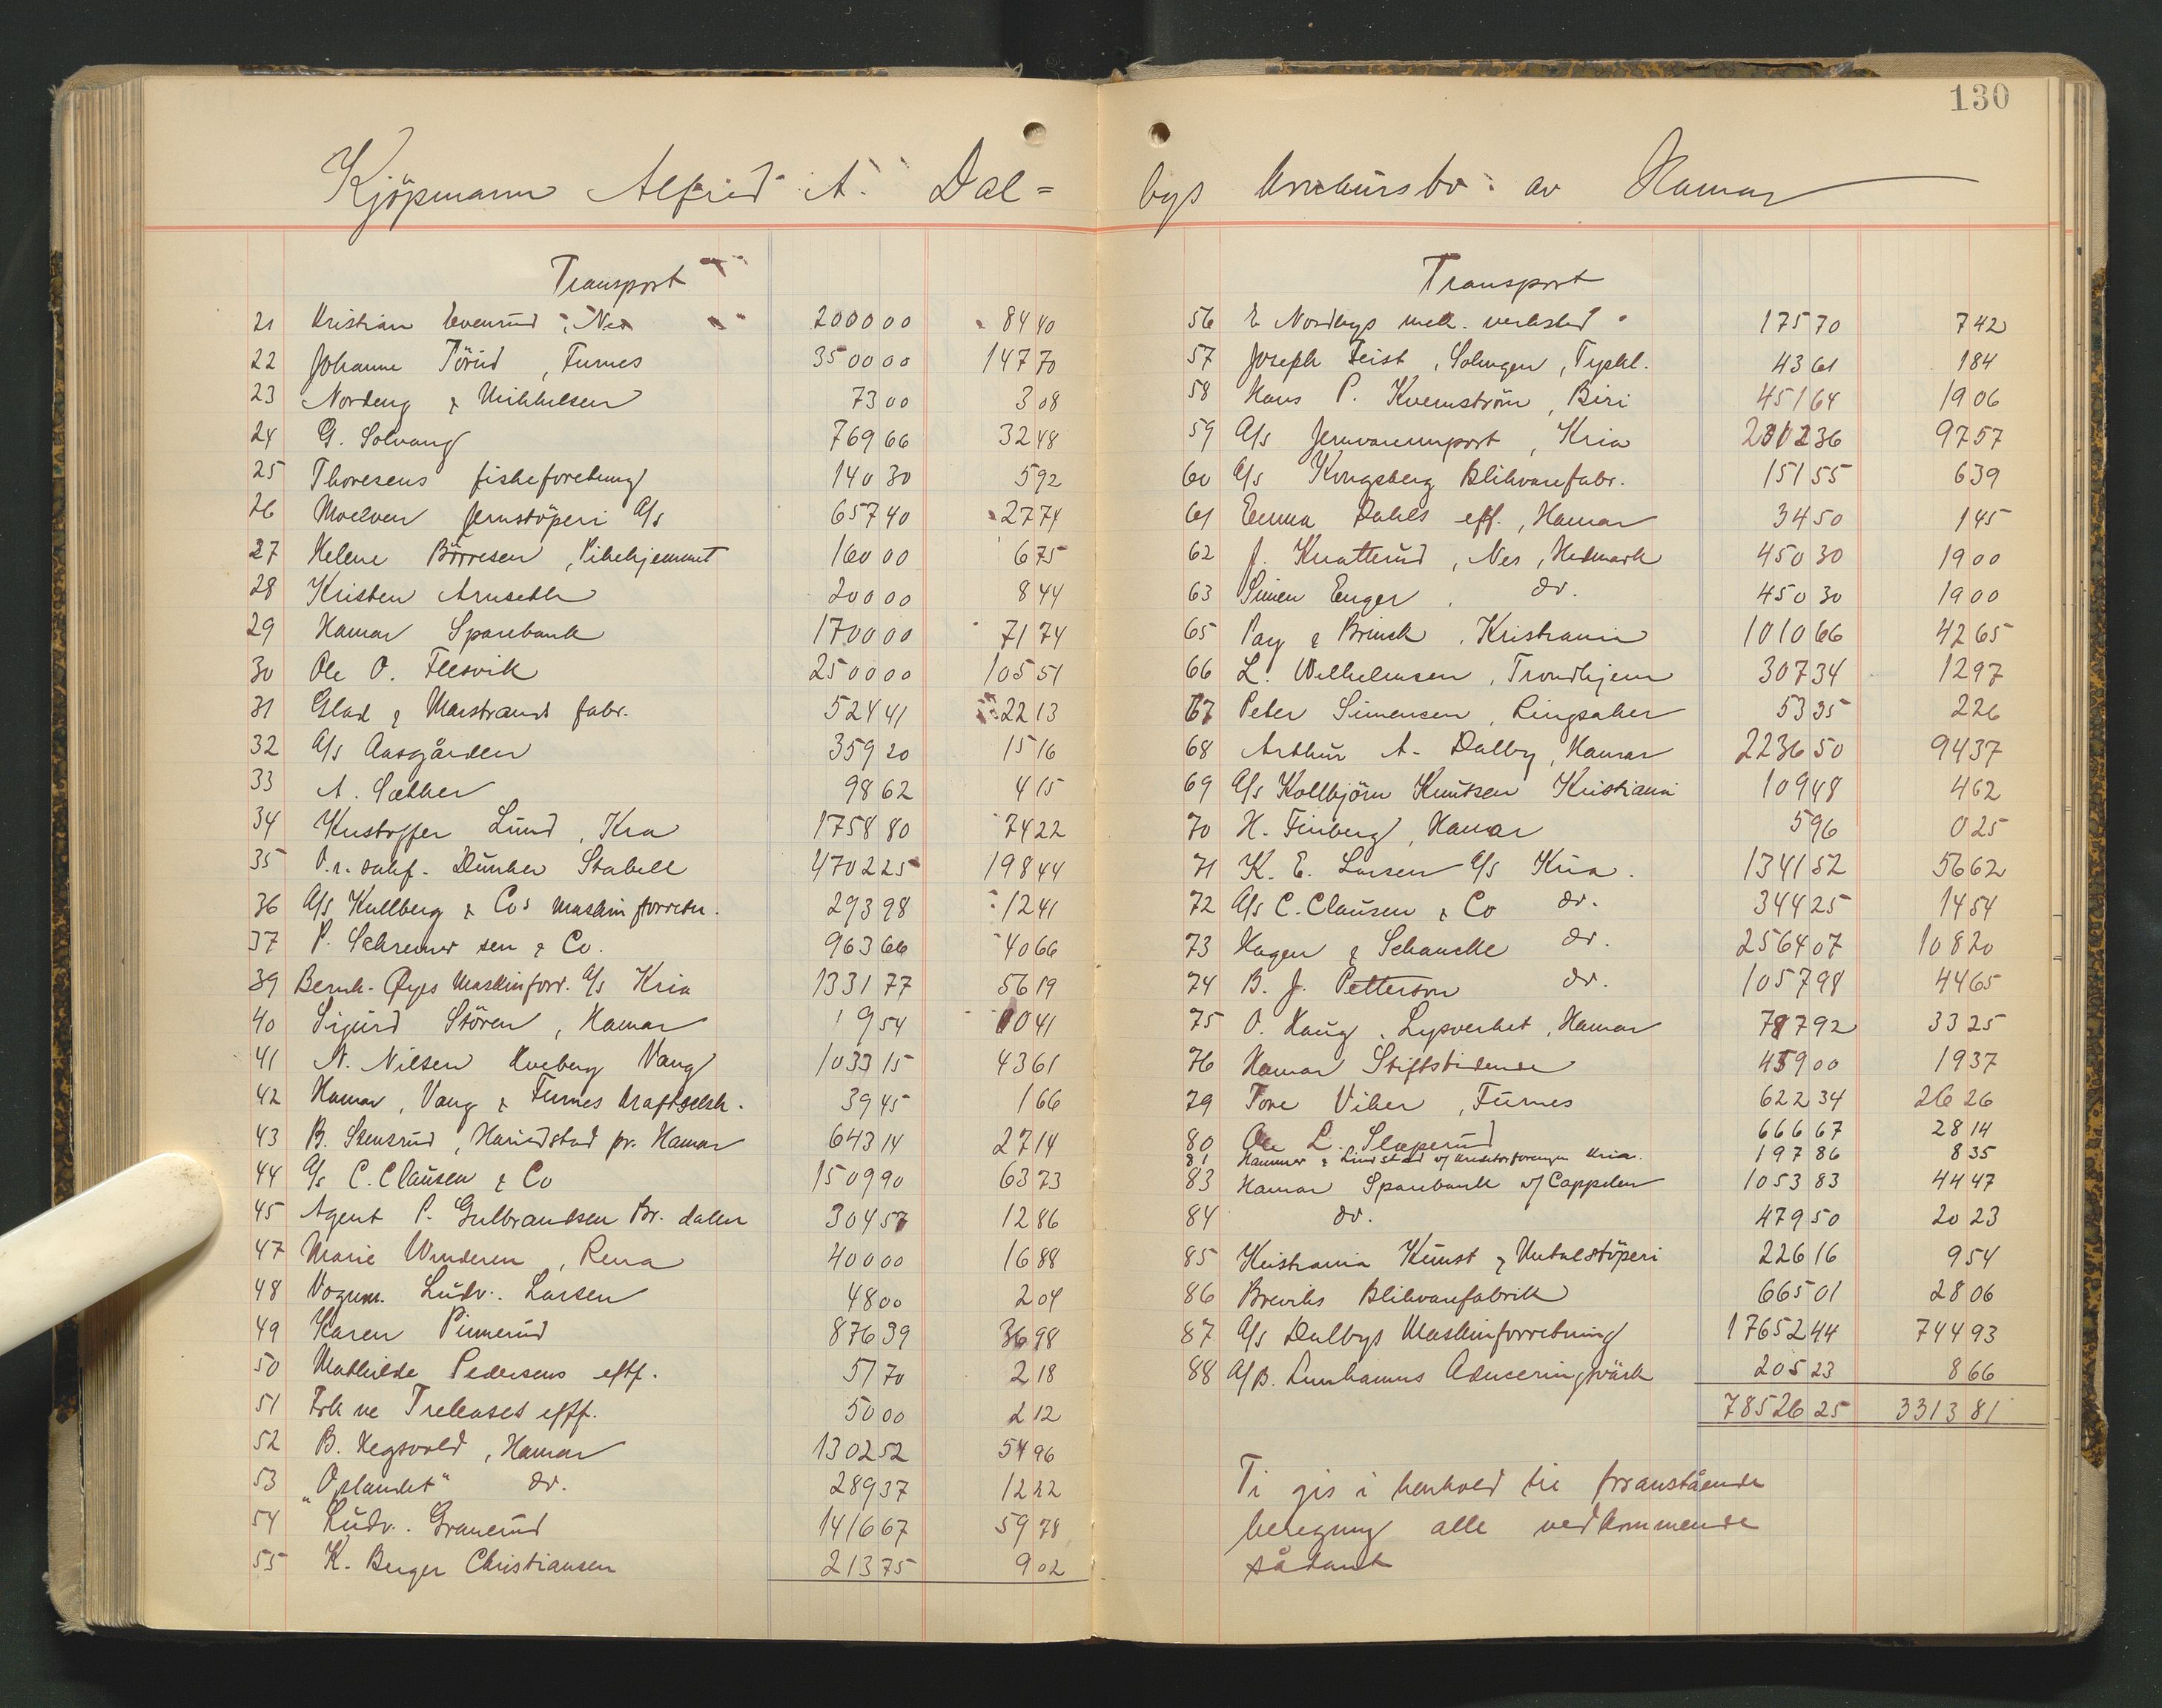 130
Kjöpmann Alfred A. Dal=
bys konkursbo: av Hamar
Transport
21 Kristian Evenrud, Nes 2000 00 84 40
22 Johanne Törud, Furnes 3500 00 147 70
23 Nordeng & Mikkelsen 73 00 3 08
24 G. Solvang 769 66 32 48
25 Thoresens fiskeforretning 140 30 5 92
26 Moelven Jernstöperi A/s 657 40 27 74
27 Helene Börresen, Pikehjemmet 160 00 6 75
28 Kristen Arnseth 200 00 8 44
29 Hamar Sparebank 1700 00 71 74
30 Ole O. Flesvik 2500 00 105 51
31 Glad & Marstrands fabr. 524 41 22 13
32 A/s Aasgården 359 20 15 16
33 A. Sæther 98 62 4 15
34 Kristoffer Lund, Kra 1758 80 74 22
35 O.r. sakf. Dunker Stabell 4702 25 198 44
36 A/s Kullberg & Cos maskinforretn. 293 98 12 41
37 P. Schreiner sen & Co. 963 66 40 66
39 Bernh. Øyes Maskinforr. A/s Kria 1331 77 56 19
40 Sigurd Stören, Hamar 9 54 0 41
41 N. Nilsen Kveberg Vang 1033 15 43 61
42 Hamar, Vang & Furnes kraftselsk. 39 45 1 66
43 B. Stensrud, Harildstad pr. Hamar 643 14 27 14
44 A/s C. Clausen & Co 1509 90 63 73
45 Agent P. Gulbrandsen Br. dalen 304 57 12 86
47 Marie Winderen, Rena 400 00 16 88
48 Vognm. Ludv. Larsen 48 00 2 04
49 Karen Pinnerud 876 39 36 98
50 Mathilde Pedersens eftf. 51 70 2 18
51 eftf. 50 00 2 12
52 B. Hegsvold, Hamar 1302 52 54 96
53 "Oplandet" do. 289 37 12 22
54 Ludv. Granerud 1416 67 59 78
55 K. Berger Christiansen 213 75 9 02
Transport
56 E Nordbys mek. verksted 175 70 7 42
57 Joseph Feist, Solingen, Tyskl. 43 61 1 84
58 Hans P. Kvernström, Biri 451 64 19 06
59 A/s Jernvareimport, Kria 2312 36 97 57
60 A/s Kongsberg Blikvarefabr. 151 55 6 39
61 Emma Dahls eff., Hamar 34 50 1 45
62 J. Knatterud, Nes, Hedmark 450 30 19 00
63 Simen Enger, do. 450 30 19 00
65 Pay & Brinck, Kristiania 1010 66 42 65
66 L. Wilhelmsen, Trondhjem 307 34 12 97
67 Peter Simensen, Ringsaker 53 35 2 26
68 Arthur A. Dalby, Hamar 2236 50 94 37
69 A/s Kolbjörn Knutsen Kristiania 109 48 4 62
70 H. Finberg, Hamar 5 96 0 25
71 K. E. Larsen A/s Kria. 1341 52 56 62
72 A/s C. Clausen & Co do. 344 25 14 54
73 Hagen & Schancke do. 2564 07 108 20
74 B. J. Petterson do. 1057 98 44 65
75 O. Haug, Lysverket, Hamar 787 92 33 25
76 Hamar Stiftstidende 459 00 19 37
79 Tove Viker, Furnes 622 34 26 26
80 Ole L. Sloperud 666 67 28 14
81 Hammer & Lindstad v/ Kreditorforeningen Kria. 197 86 8 35
83 Hamar Sparebank v/ Cappelen 1053 83 44 47
84 do. 479 50 20 23
85 Kristiania Kunst & Metalstöperi 226 16 9 54
86 Breviks Blikvarefabrik 665 01 28 06
87 A/s Dalbys Maskinforretning 17652 44 744 93
88 A/B. Lunhamns Aduceringsvärk 205 23 8 66
78526 25 3313 81
Ti gis i henhold til foranstående
beregning alle vedkommende
sådant